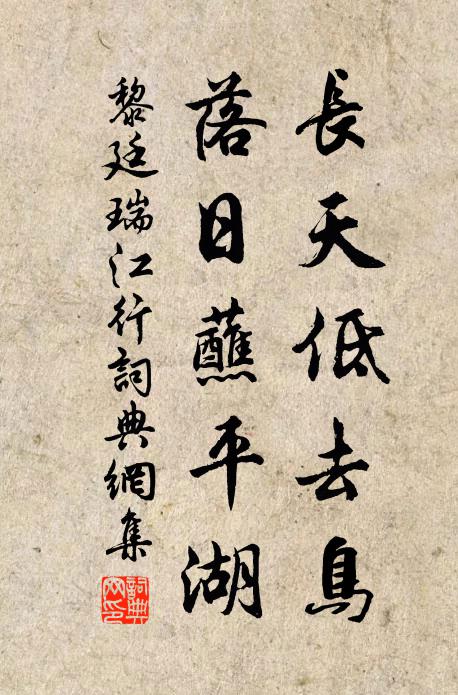 長天低去鳥
落日蘸平湖
黎廷瑞江行詞典網集
詞典
网印